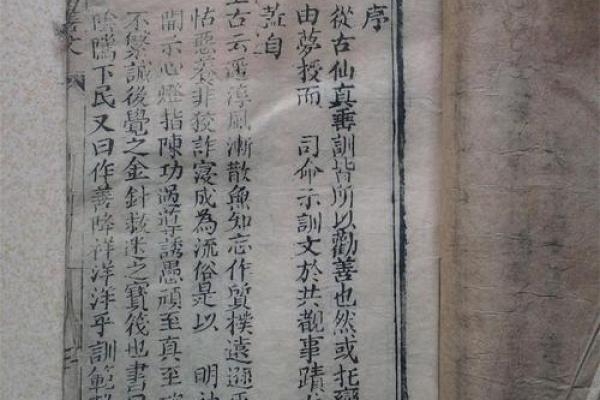 序
從古仙真垂訓皆所以勸善也然或托鸞
由夢授而 司命示訓文於共覩事蹟
蓋自
上古云遥淳風漸散無知忘作質樸遠遜乎
怙惡養非狡詐寖成為流俗是以 明神
開示心燈指陳功過等誘愚頑至真至
不誠後覺之金針救迷之寶筏也書曰
陰隲下民又曰作善降祥洋洋乎訓範
善文